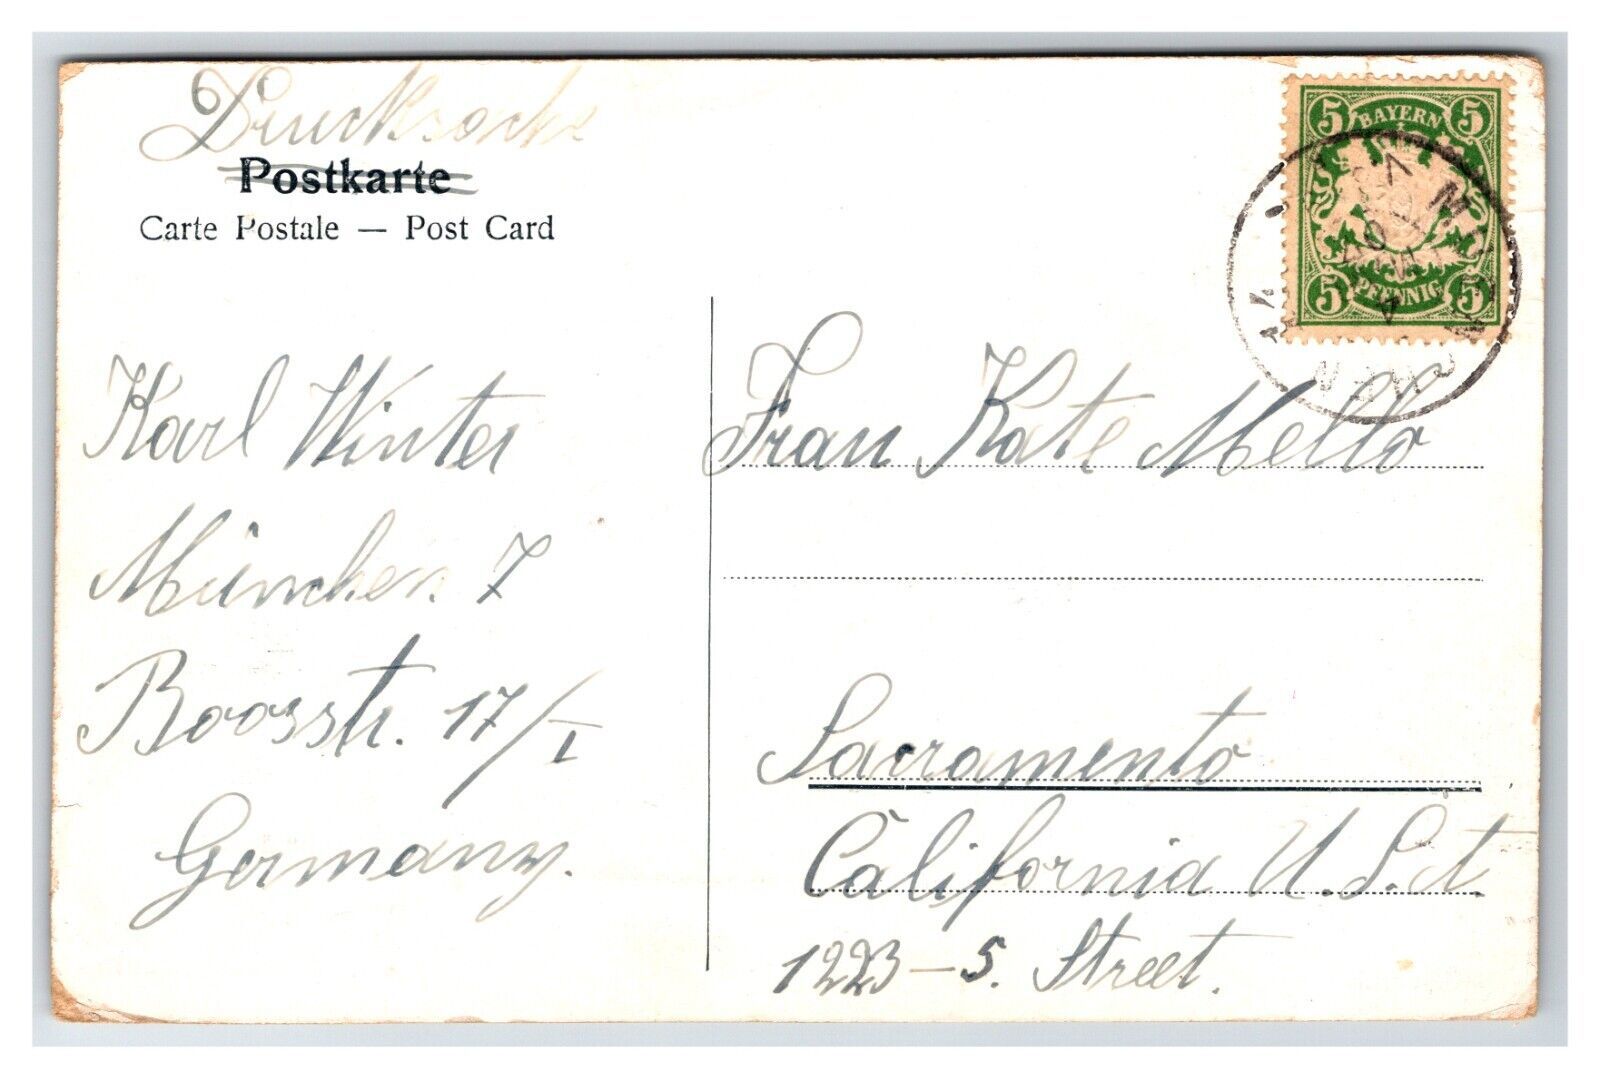 Drucksache
Postkarte
Carte Postale — Post Card
5 BAYERN 5
5 PFENNIG 5
Karl Winter
München 7
Boosstr. 17/I
Germany.
Frau Kate Mello
Sacramento
California U.S.A.
1223 – S. Street.